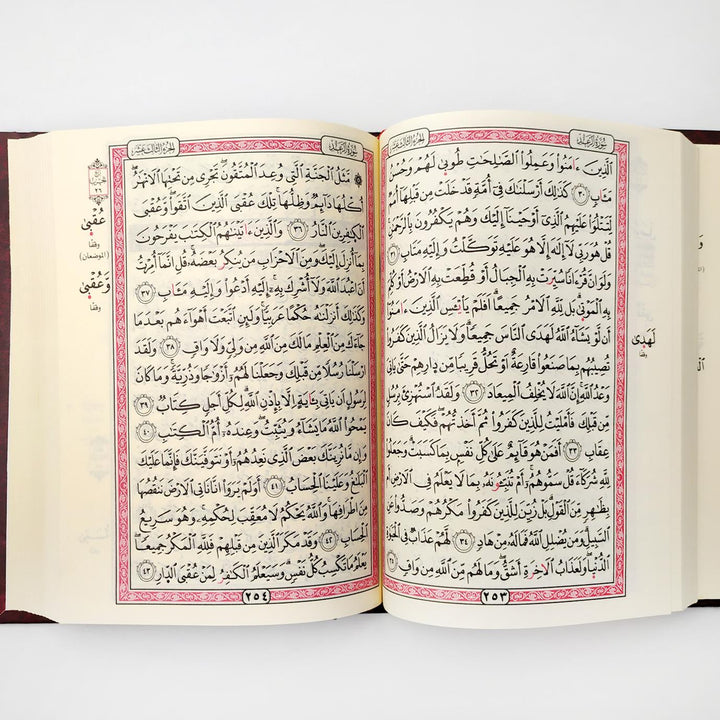 سُورَةُ الرَّعْدِ
الجُزءُ الثَّالِثَ عَشَرَ
الَّذِينَ ءَامَنُوا وَعَمِلُوا الصَّٰلِحَٰتِ طُوبىٰ لَهُمْ وَحُسْنُ
مَـَٔابٍ ٣٠ كَذَٰلِكَ أَرْسَلْنَٰكَ فِي أُمَّةٍ قَدْ خَلَتْ مِن قَبْلِهَا أُمَمٌ
لِّتَتْلُوَا عَلَيْهِمُ الَّذِي أَوْحَيْنَا إِلَيْكَ وَهُمْ يَكْفُرُونَ بِالرَّحْمَٰنِ
قُلْ هُوَ رَبِّي لَا إِلَٰهَ إِلَّا هُوَ عَلَيْهِ تَوَكَّلْتُ وَإِلَيْهِ مَتَابِ ٣١
وَلَوْ أَنَّ قُرْءَانًا سُيِّرَتْ بِهِ الْجِبَالُ أَوْ قُطِّعَتْ بِهِ الْأَرْضُ أَوْ كُلِّمَ
بِهِ الْمَوْتىٰ بَل لِّلهِ الْأَمْرُ جَمِيعًا أَفَلَمْ يَا۟يْـَٔسِ الَّذِينَ ءَامَنُوا
أَن لَّوْ يَشَاءُ اللَّهُ لَهَدَى النَّاسَ جَمِيعًا وَلَا يَزَالُ الَّذِينَ كَفَرُوا
تُصِيبُهُم بِمَا صَنَعُوا قَارِعَةٌ أَوْ تَحُلُّ قَرِيبًا مِّن دِارِهِمْ حَتَّىٰ يَأْتِيَ
وَعْدُ اللَّهِ إِنَّ اللَّهَ لَا يُخْلِفُ الْمِيعَادَ ٣٢ وَلَقَدُ اسْتُهْزِئَ بِرُسُلٍ
مِّن قَبْلِكَ فَأَمْلَيْتُ لِلَّذِينَ كَفَرُوا ثُمَّ أَخَذتُّهُمْ فَكَيْفَ كَانَ
عِقَابِ ٣٣ أَفَمَنْ هُوَ قَائِمٌ عَلَىٰ كُلِّ نَفْسٍ بِمَا كَسَبَتْ وَجَعَلُوا
لِلَّهِ شُرَكَاءَ قُلْ سَمُّوهُمْ أَمْ تُنَبِّـُٔونَهُ بِمَا لَا يَعْلَمُ فِي الْأَرْضِ أَم
بِظَٰهِرٍ مِّنَ الْقَوْلِ بَل زُيِّنَ لِلَّذِينَ كَفَرُوا مَكْرُهُمْ وَصُدُّوا عَنِ
السَّبِيلِ وَمَن يُضْلِلِ اللَّهُ فَمَا لَهُ مِنْ هَادٍ ٣٤ لَّهُمْ عَذَابٌ فِي الْحَيَوٰةِ
الدُّنْيَا وَلَعَذَابُ الْأَخِرَةِ أَشَقُّ وَمَا لَهُم مِّنَ اللَّهِ مِن وَاقٍ ٣٥
لَهَدَى
وقفا
٢٥٣
سُورَةُ الرَّعْدِ
الجُزءُ الثَّالِثَ عَشَرَ
مَّثَلُ الْجَنَّةِ الَّتِي وُعِدَ الْمُتَّقُونَ تَجْرِي مِن تَحْتِهَا الْأَنْهَٰرُ
أُكْلُهَا دَائِمٌ وَظِلُّهَا تِلْكَ عُقْبَى الَّذِينَ اتَّقَوا وَّعُقْبَى
الْكٰفِرِينَ النَّارُ ٣٦ وَالَّذِينَ ءَاتَيْنَٰهُمُ الْكِتَٰبَ يَفْرَحُونَ
بِمَا أُنزِلَ إِلَيْكَ وَمِنَ الْأَحْزَابِ مَن يُنكِرُ بَعْضَهُ قُلْ إِنَّمَا أُمِرْتُ
أَنْ أَعْبُدَ اللَّهَ وَلَا أُشْرِكَ بِهِ إِلَيْهِ أَدْعُوا وَإِلَيْهِ مَـَٔابِ ٣٧
وَكَذَٰلِكَ أَنزَلْنَٰهُ حُكْمًا عَرَبِيًّا وَلَئِنِ اتَّبَعْتَ أَهْوَاءَهُم بَعْدَمَا
جَاءَكَ مِنَ الْعِلْمِ مَا لَكَ مِنَ اللَّهِ مِن وَلِيٍّ وَلَا وَاقٍ ٣٨ وَلَقَدْ
أَرْسَلْنَا رُسُلًا مِّن قَبْلِكَ وَجَعَلْنَا لَهُمْ أَزْوَٰجًا وَذُرِّيَّةً وَمَا كَانَ
لِرَسُولٍ أَن يَأْتِيَ بِـَٔايَةٍ إِلَّا بِإِذْنِ اللَّهِ لِكُلِّ أَجَلٍ كِتَابٌ ٣٩
يَمْحُوا اللَّهُ مَا يَشَاءُ وَيُثَبِّتُ وَعِندَهُ أُمُّ الْكِتَٰبِ ٤٠
وَإِن مَّا نُرِيَنَّكَ بَعْضَ الَّذِي نَعِدُهُمْ أَوْ نَتَوَفَّيَنَّكَ فَإِنَّمَا عَلَيْكَ
الْبَلَٰغُ وَعَلَيْنَا الْحِسَابُ ٤١ أَوَلَمْ يَرَوْا أَنَّا نَأْتِي الْأَرْضَ نَنقُصُهَا
مِنْ أَطْرَافِهَا وَاللَّهُ يَحْكُمُ لَا مُعَقِّبَ لِحُكْمِهِ وَهُوَ سَرِيعُ
الْحِسَابِ ٤٢ وَقَدْ مَكَرَ الَّذِينَ مِن قَبْلِهِمْ فَلِلَّهِ الْمَكْرُ جَمِيعًا
يَعْلَمُ مَا تَكْسِبُ كُلُّ نَفْسٍ وَسَيَعْلَمُ الْكَٰفِرُ لِمَنْ عُقْبَى الدِّارِ ٤٣
عُقْبَى
وقفا
(الموضعان)
وَعُقْبَى
وقفا
٢٥٤